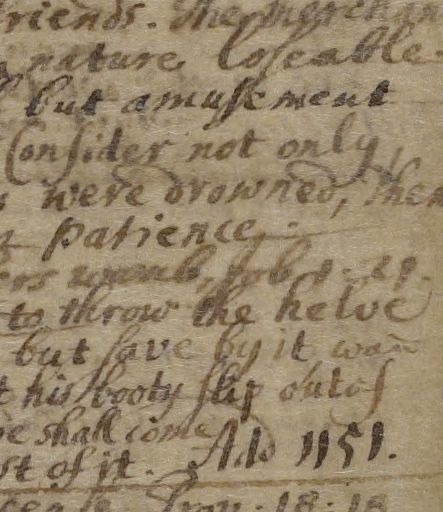 friends. The merchan
nature loseable
but amusement
Consider not only,
were drowned, then
patience.
ers womb, Job 1. 21.
to throw the helve
but save by it was
t his booty slip out of
re shall come
st of it. Ad 1151.
Prov. 18. 18